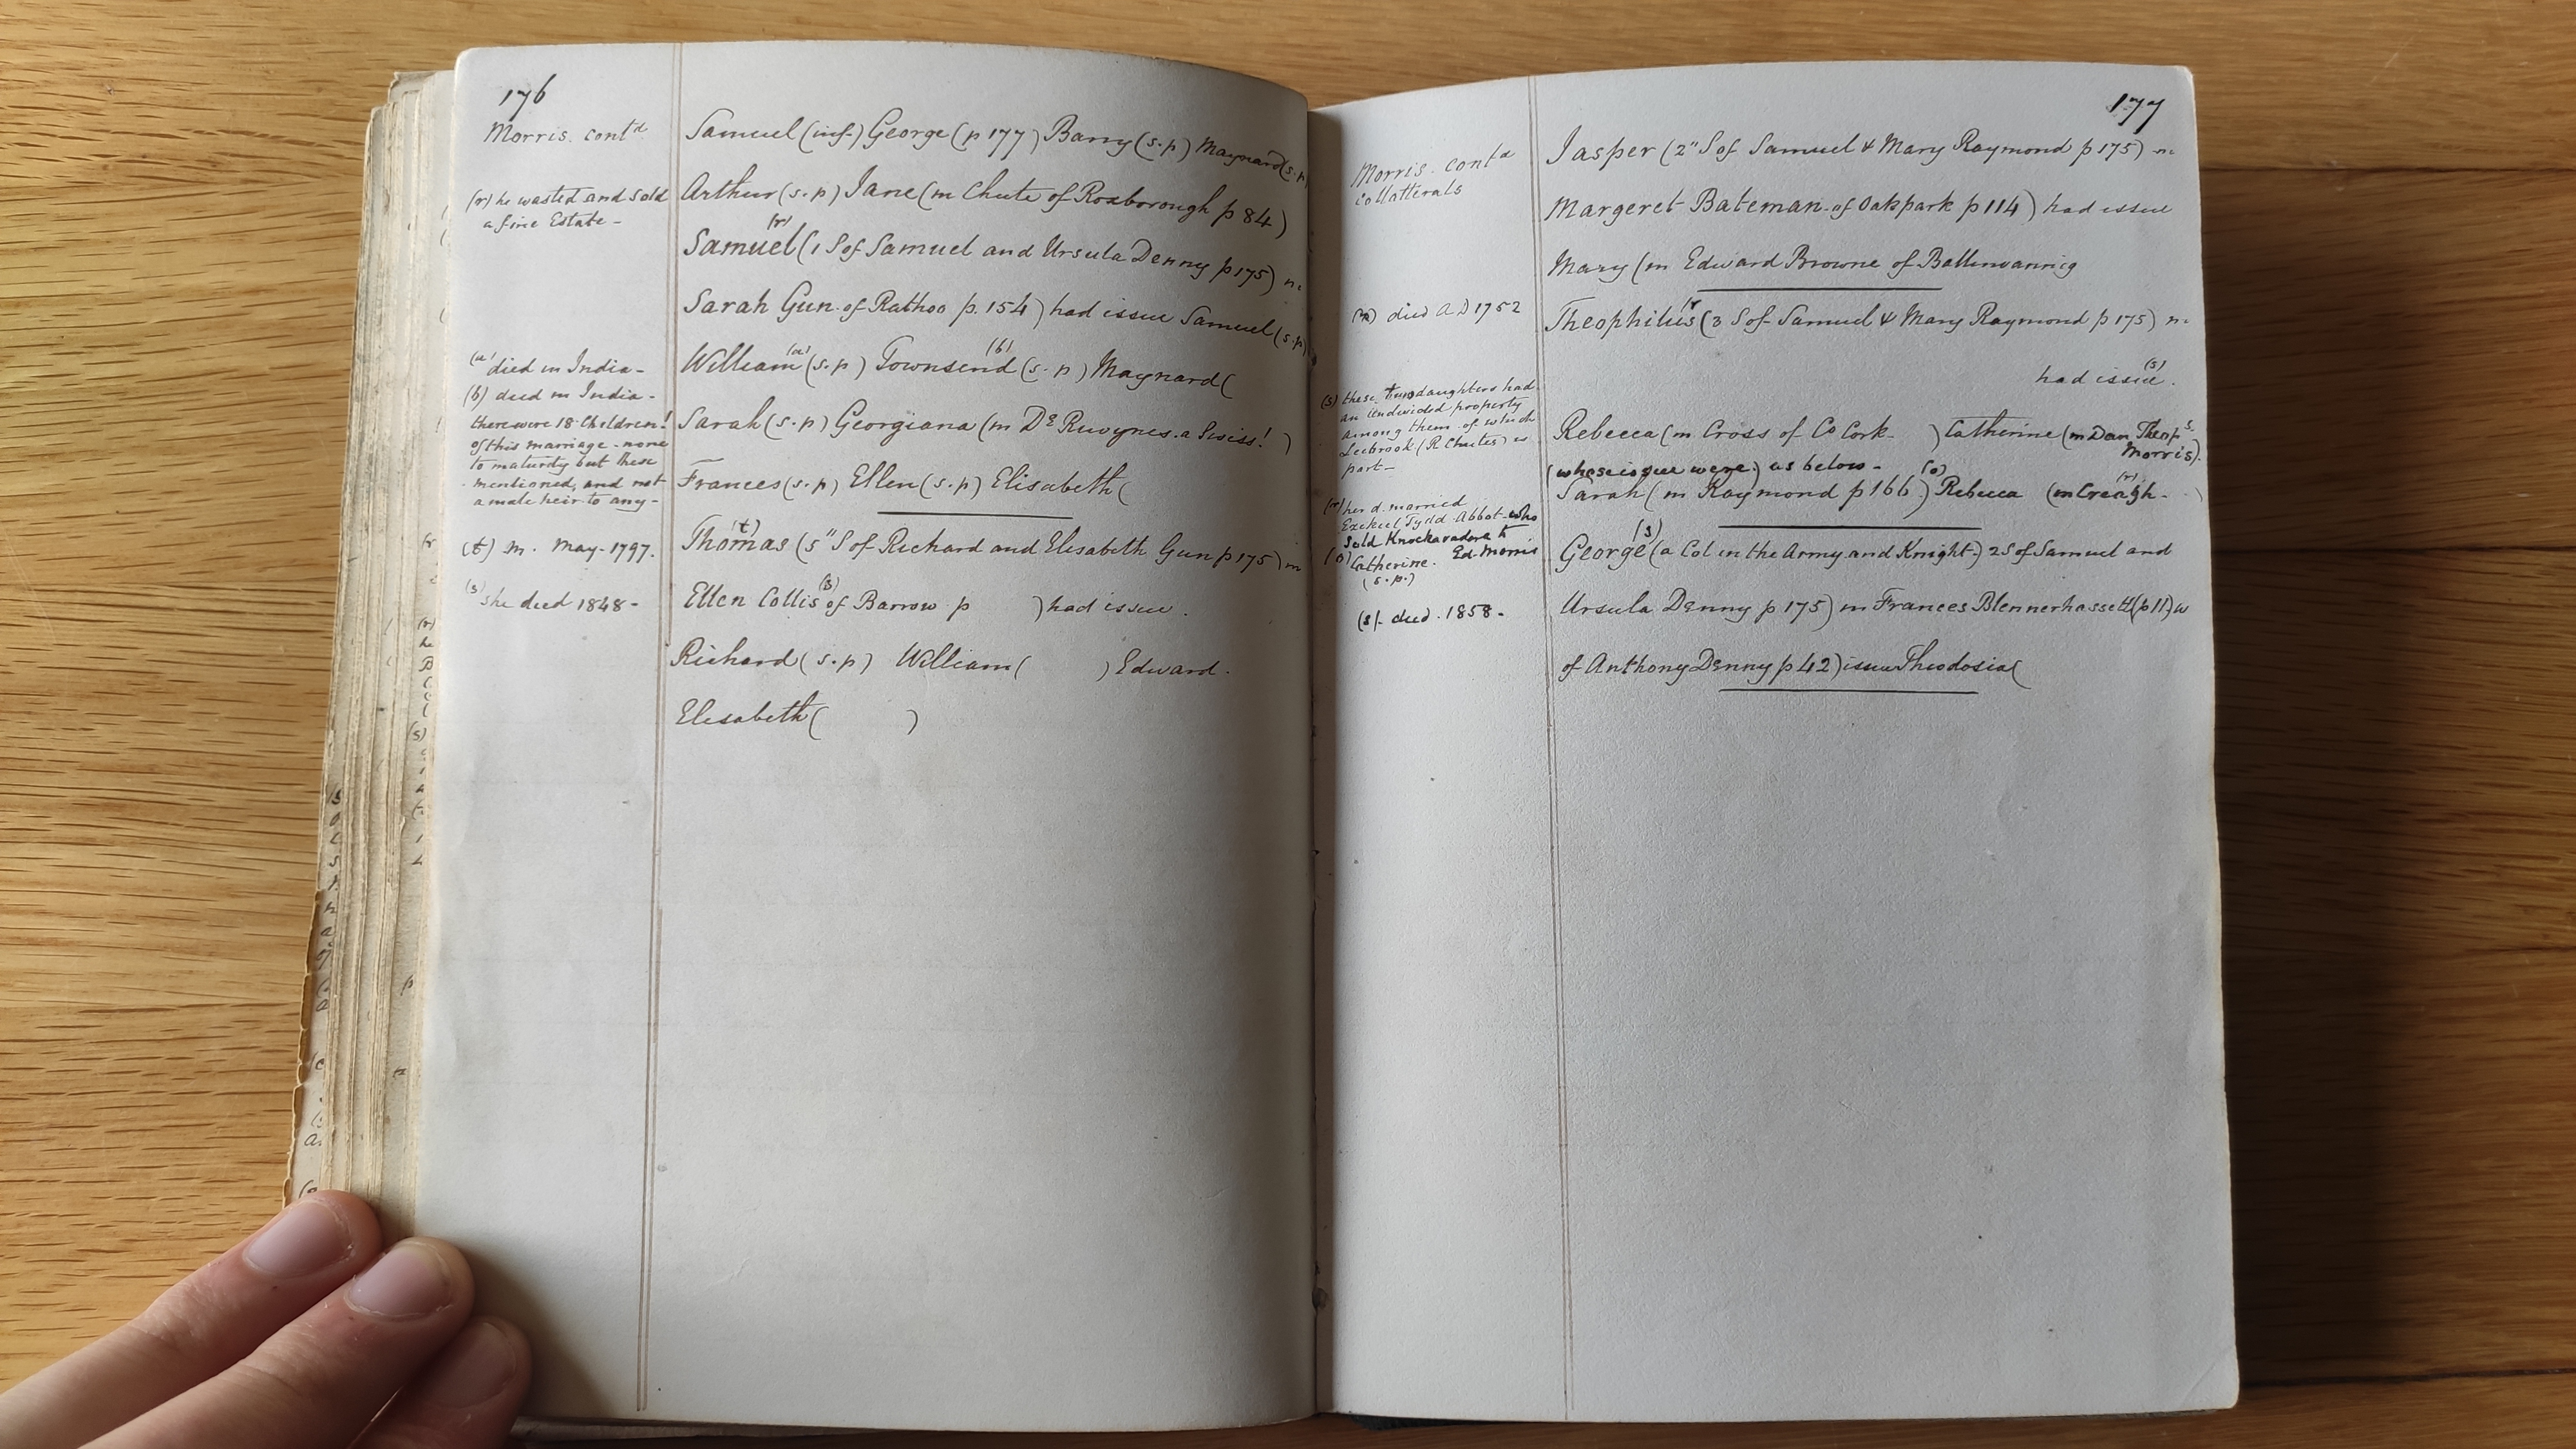 176
Morris. contd
Samuel (inf-) George (p 177) Barry (s.p) Maynard (s.p
(r) he wasted and sold
a fine Estate -
Arthur (s.p) Jane (m Chute of Roxborough p 84)
(r)
Samuel (1 S of Samuel and Ursula Denny p 175) m.
Sarah Gun. of Rattoo p. 154) had issue Samuel (s.p)
(a) died in India -
(b) died in India -
there were 18 Children!
of this marriage - none
to maturity but these
mentioned, and not
a male heir to any -
(a) (b)
William (s.p) Townsend (s.p) Maynard (
Sarah (s.p) Georgiana (m De Ruvynes. a Swiss! )
Frances (s.p) Ellen (s.p) Elisabeth (
(t) m. May - 1797.
(t)
Thomas (5" S of Richard and Elisabeth Gun p 175) m
(s) she died 1848 -
(s)
Ellen Collis of Barrow p ) had issue.
Richard (s.p) William ( ) Edward.
Elisabeth ( )
177
Morris. contd
Collatterals
Jasper (2" S of Samuel & Mary Raymond p 175) m.
Margeret Bateman. of Oakpark p 114) had issue
Mary (m Edward Browne of
(r) died A D 1752
(r
Theophilus (3 S of Samuel & Mary Raymond p 175) m.
(s)
had issue.
(s) these two daughters had
an undivided property
among them of which
Leebrook (R Chutes) is
part -
Rebecca (m Cross of Co Cork - ) Catherine (m Dan Theops
Morris).
(whose issue were) as below -
(o) (r)
Sarah (m Raymond p 166.) Rebecca (m Creagh - )
(r) her d. married
Ezekiel Tydd Abbot - who
sold Knockavadora to
Ed. Morris
(o) Catherine.
(s.p.)
(s)
George (a Col in the Army and Knight -) 2 S of Samuel and
(s) - died. 1858 -
Ursula Denny p 175) m Frances Blennerhassett (p 11) w
of Anthony Denny p 42) issue Theodosia (